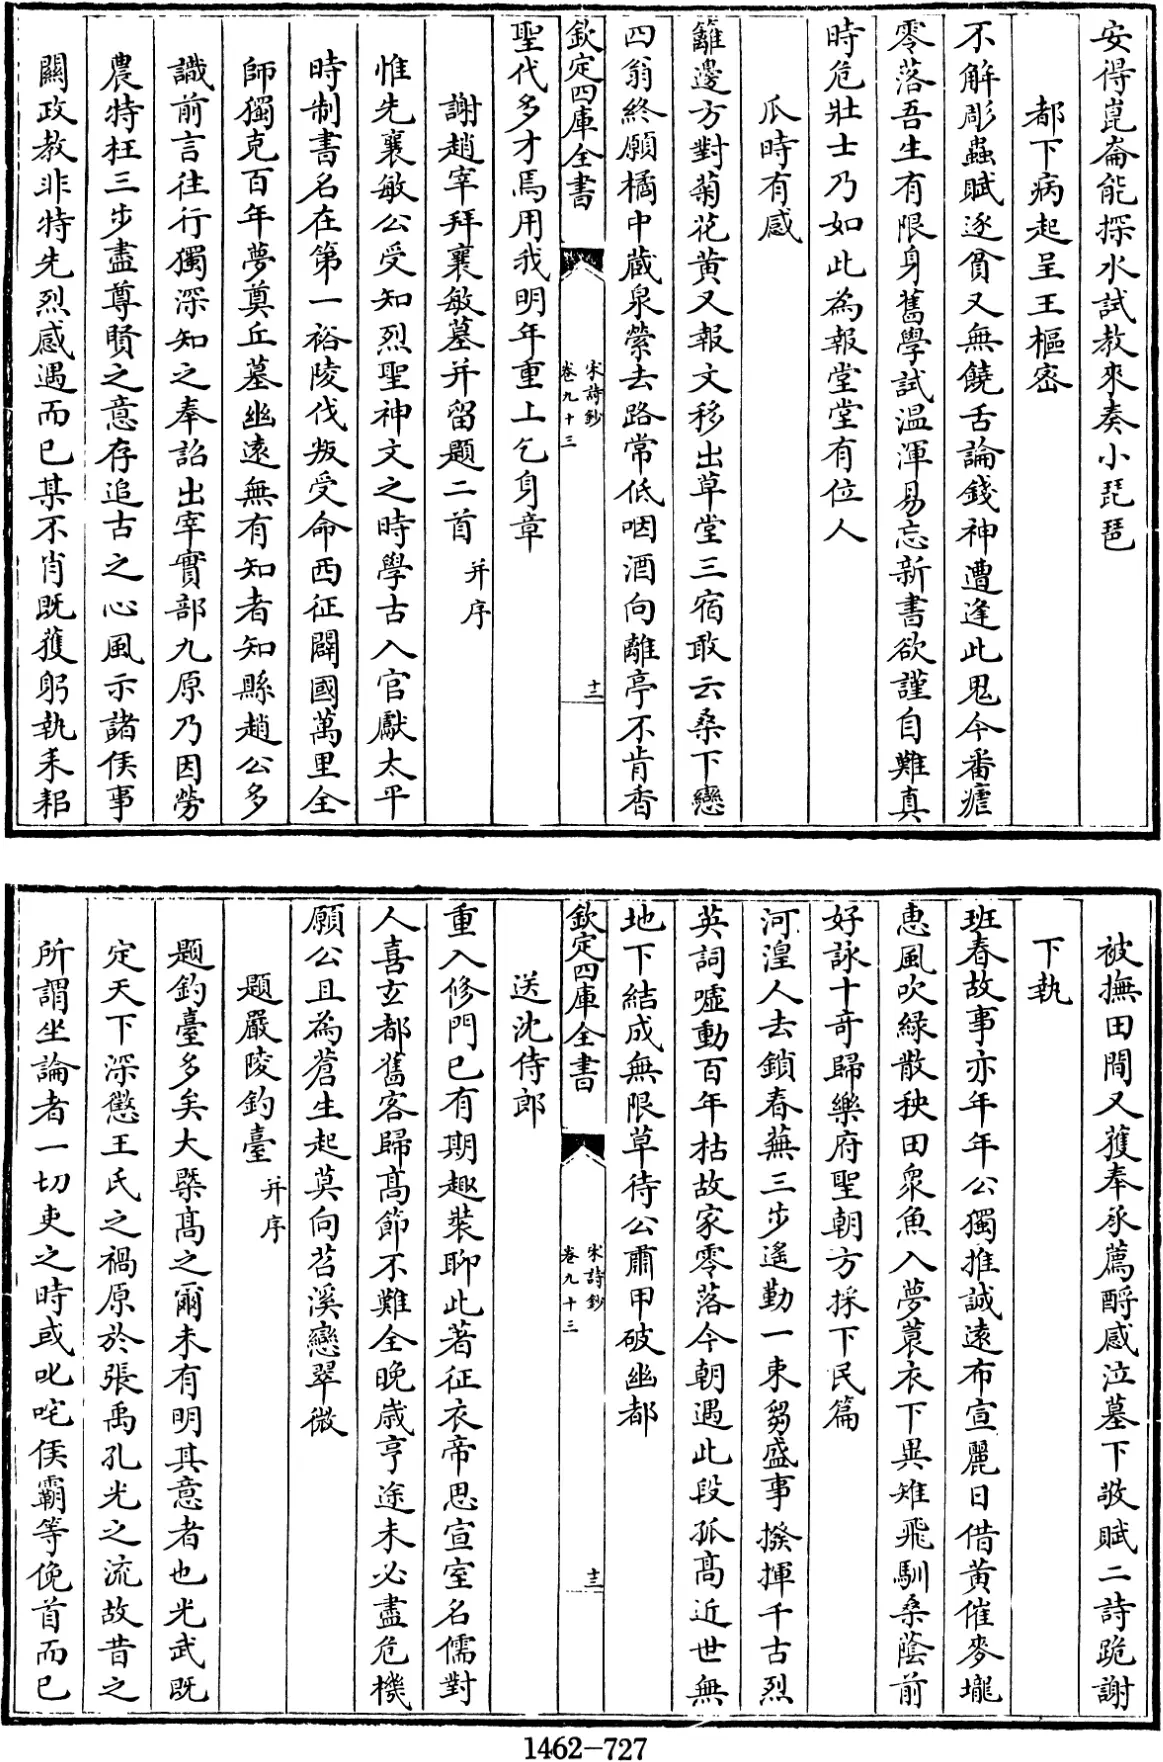 安得崑崙能探水試教來奏小琵琶
都下病起呈王樞密
不解彫蟲賦逐貧又無饒舌論錢神遭逢此鬼今番瘧
零落吾生有限身舊學試温渾易忘新書欲謹自難真
時危壯士乃如此為報堂堂有位人
瓜時有感
籬邊方對菊花黄又報文移出草堂三宿敢云桑下戀
四翁終願橘中藏泉縈去路常低咽酒向離亭不肯香
欽定四庫全書
宋詩鈔
卷九十三
十二
聖代多才焉用我明年重上乞身章
謝趙宰拜襄敏墓并留題二首并序
惟先襄敏公受知烈聖神文之時學古入官獻太平
時制書名在第一裕陵伐叛受命西征闢國萬里全
師獨克百年夢奠丘墓幽遠無有知者知縣趙公多
識前言往行獨深知之奉詔出宰實部九原乃因勞
農特枉三步盡尊賢之意存追古之心風示諸侯事
關政教非特先烈感遇而已某不肖既獲躬執耒耜
被撫田間又獲奉承薦酹感泣墓下敬賦二詩跪謝
下執
班春故事亦年年公獨推誠遠布宣麗日借黄催麥壠
惠風吹緑散秧田衆魚入夢蓑衣下異雉飛馴桑蔭前
好詠十竒歸樂府聖朝方採下民篇
河湟人去鎖春蕪三步遙勤一束芻盛事撥揮千古烈
英詞噓動百年枯故家零落今朝遇此段孤髙近世無
地下結成無限草待公肅甲破幽都
欽定四庫全書
宋詩鈔
卷九十三
十三
送沈侍郎
重入修門已有期趣裝聊此著征衣帝思宣室名儒對
人喜玄都舊客歸髙節不難全晚歲亨途未必盡危機
願公且為蒼生起莫向苕溪戀翠微
題嚴陵釣臺并序
題釣臺多矣大槩髙之爾未有明其意者也光武既
定天下深懲王氏之禍原於張禹孔光之流故昔之
所謂坐論者一切吏之時或叱咤侯霸等俛首而已
1462-727